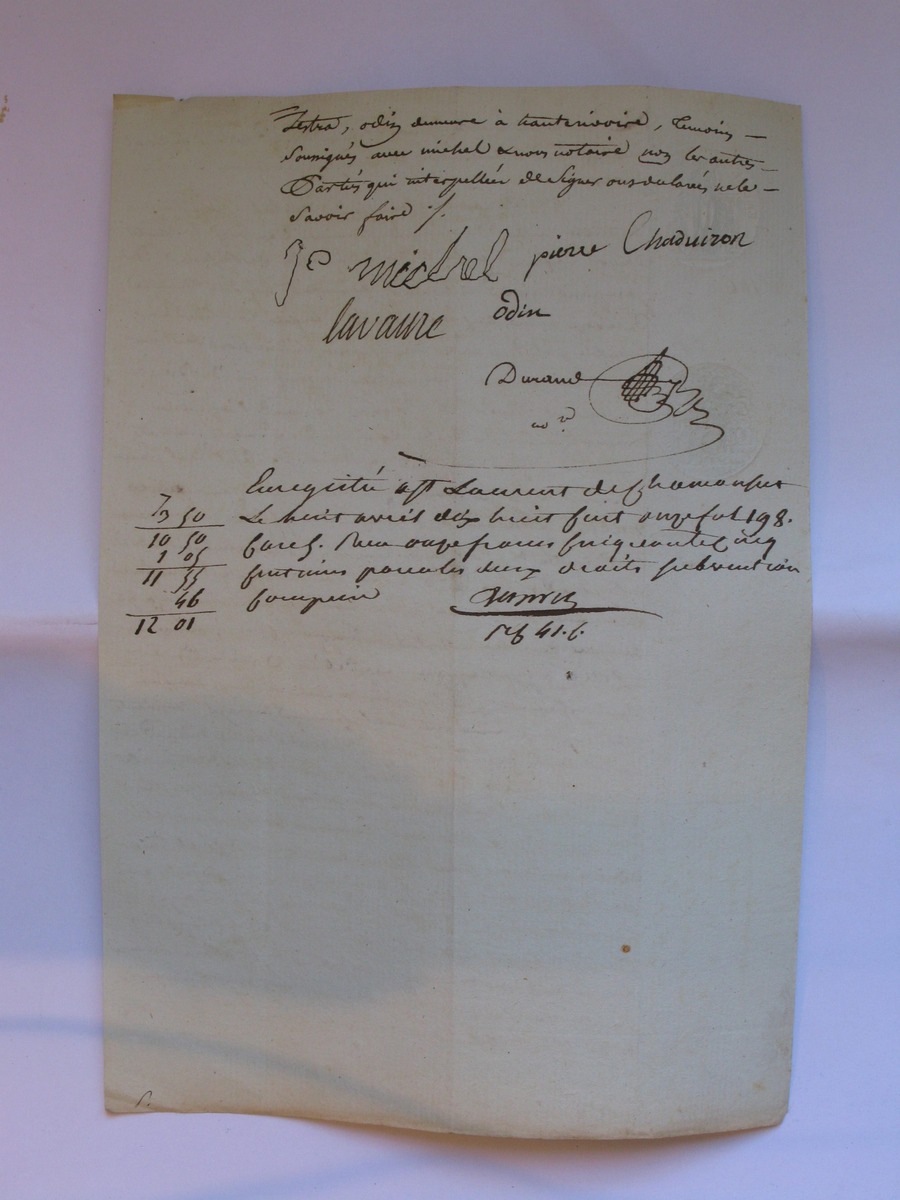 Jestra, odin demeure à hauterivoire, temoins
Soussignés avec michel & nous notaire non les autres
Parties qui interpellées de Signer ont declarés ne le
Savoir faire ./.
Je michel pierre Chaduiron
lavaure odin
Durand
no.re
Enregistré a St Laurent de Chamousset
Le huit avril dix huit cent onze fol 198.
Case 5. Reçu onze francs cinquante cinq
centimes pour les deux droits subvention
comprise
7
3 50
10 50
1 05
11 55
46
12 01